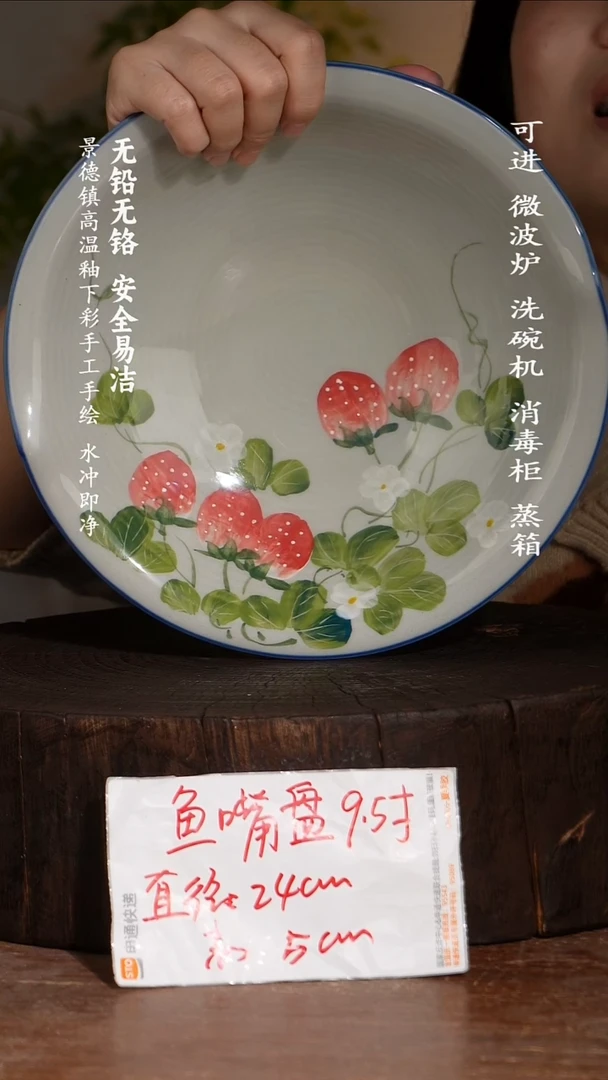 可进 微波炉 洗碗机 消毒柜 蒸箱
无铅无铬 安全易洁
景德镇高温釉下彩手工手绘 水冲即净
鱼嘴盘9.5寸
直径:24cm
高:5cm
申通快递
STO